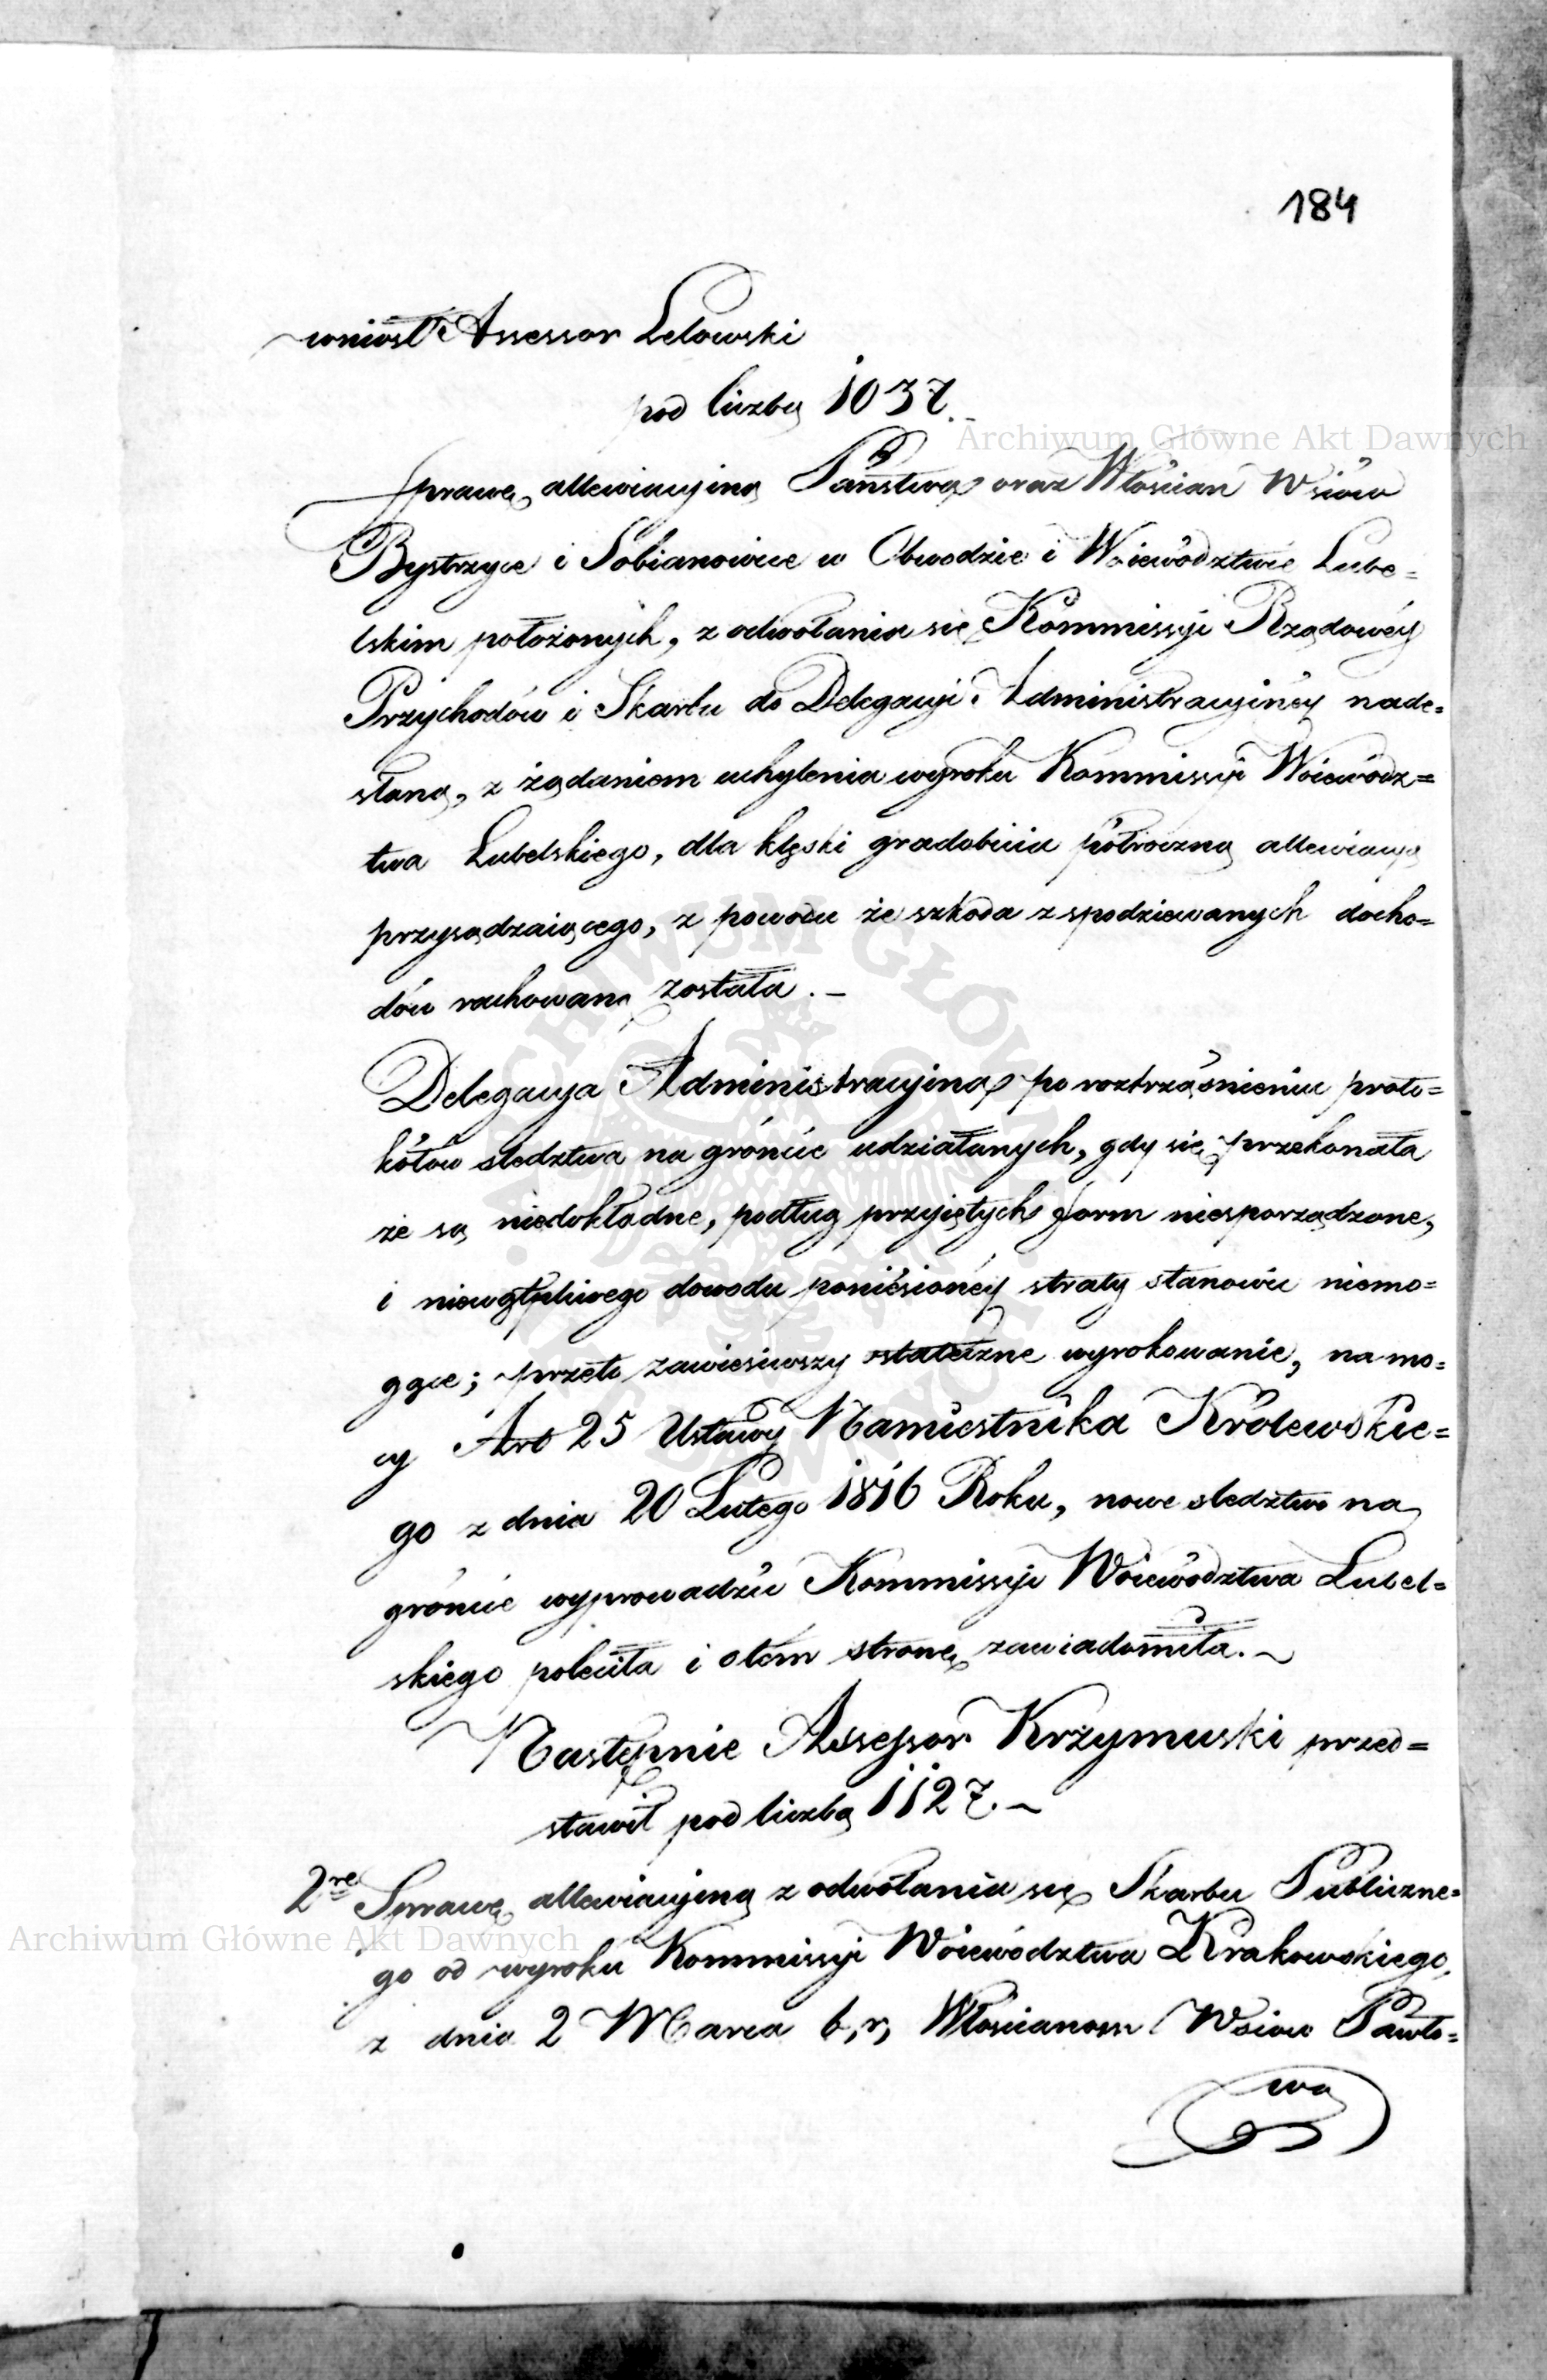 184
wniosł Assessor Lelowski
pod liczbą 1037.
Archiwum Główne Akt Dawnych
sprawę allewiacyjną Państwa oraz Włościan Wsiów
Bystrzyce i Sobianowice w Obwodzie i Woiewództwie Lube=
lskim położonych, z odwołania się Kommissyi Rządowéy
Przychodów i Skarbu do Delegacyi Administracyinéy nade=
słaną, z żądaniem uchylenia wyroku Kommissyi Woiewódz=
twa Lubelskiego, dla klęski gradobicia półroczną allewiacyą
przysądzaiącego, z powodu że szkoda z spodziewanych docho=
dów rachowaną została. –
Delegacya Administracyina po roztrząśnieniu proto=
kółów śledztwa na gróncie udziałanych, gdy się przekonała
że są niedokładne, podług przyiętych form niesporządzone,
i niewątpliwego dowodu poniesionéy straty stanowić niemo=
gące; przeto zawiesiwszy ostateczne wyrokowanie, na mo=
cy Art 25 Ustawy Namiestnika Królewskie=
go z dnia 20 Lutego 1816 Roku, nowe śledztwo na
gróncie wyprowadzić Kommissyi Woiewództwa Lubel=
skiego poleciła i otém stronę zawiadomiła. ~
Następnie Assessor Krzymuski przed=
stawił pod liczbą 1127. ~
2re Sprawę allewiacyjną z odwołania się Skarbu Publiczne=
Archiwum Główne Akt Dawnych
go od wyroku Kommissyi Woiewództwa Krakowskiego,
z dnia 2 Marca b, r, Włościanom Wsiów Pawło=
wa